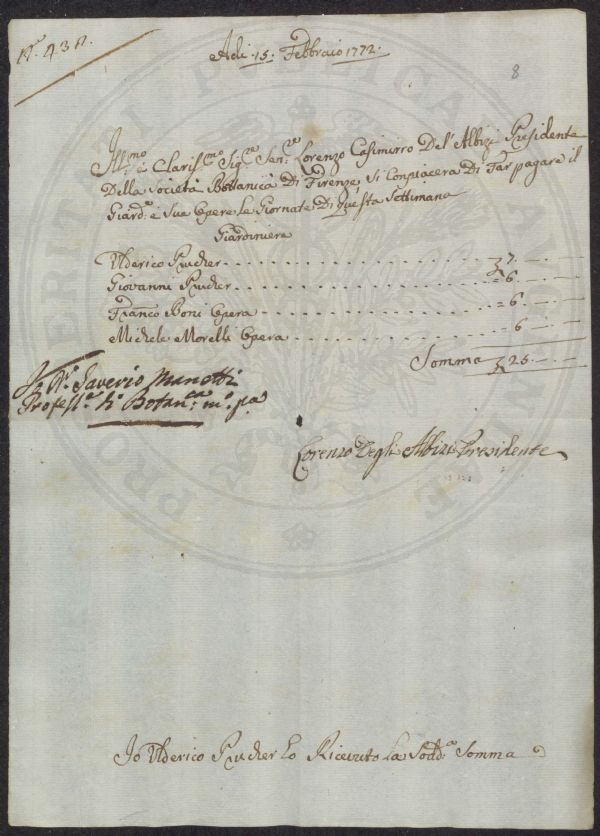 N.° 431.
Adi . 15 . Febbraio 1772 .
8
Ill:mo e Clariss:mo Sig:re Sen:re Lorenzo Casimirro Del' Albizi Presidente
Della Società Bottanica Di Firenze Si Conpiacera Di Far pagare il
Giard:e e Sue Opere le Giornate Di Questa Settimana
Giardiniere
Ulderico Prucher . . . 7 . —
Giovanni Prucher . . . = 6 . —
Franco Boni Opera . . . = 6 . —
Michele Morelli Opera . . . 6 —
Somma 25 . —
Io D.r Saverio Manetti
Profess.re di Botan:ca m.o p.a
Lorenzo Degli Albizi Presidente
Io Ulderico Prucher ho Ricevuto La Sodd:a Somma
PUBLICA